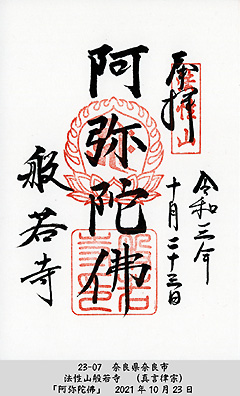 奉拝
令和三年
十月二十三日
阿弥陀佛
般若寺
23-07 奈良県奈良市
法性山般若寺 (真言律宗)
「阿弥陀佛」 2021年10月23日